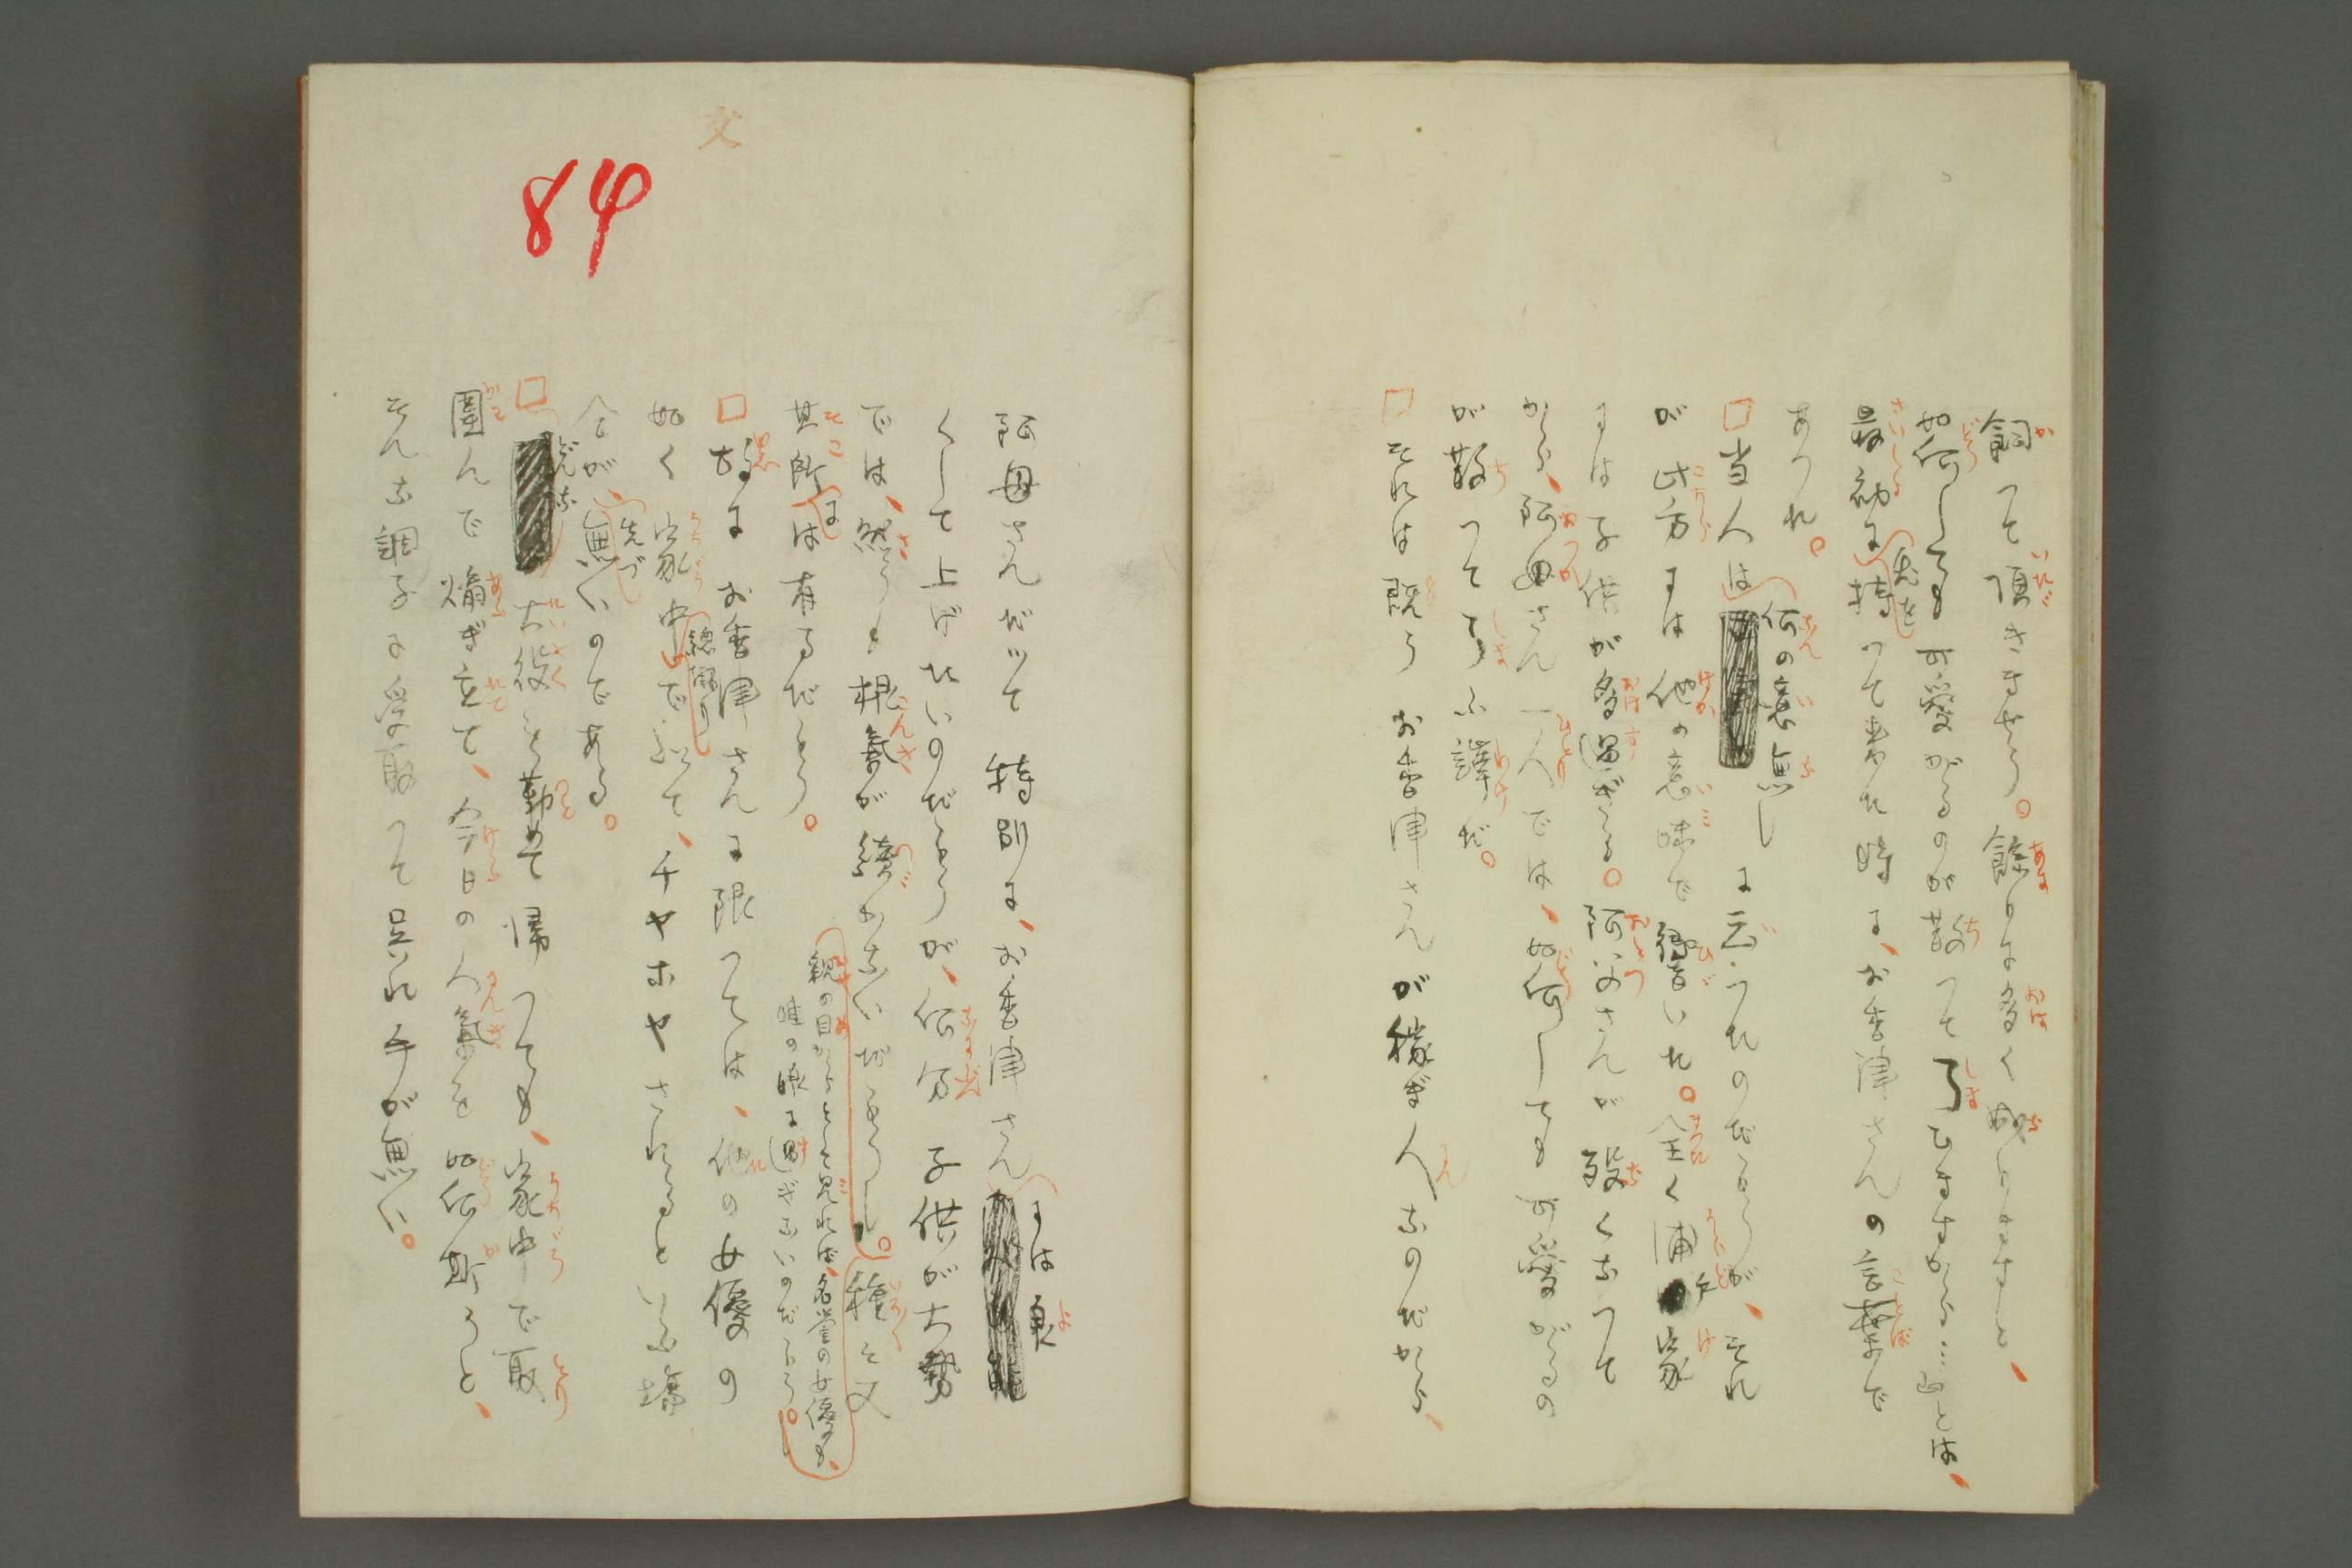 飼って頂きませう。餘りに多く成りますと、
如何しても可愛がるのが散って了ひますから……』とは、
最初に兎を持って来た時に、お香津さんの言葉で
あつた。
□当人は何の意無しに云つたのだらうが、それ
が此方には他の意味で響いた。全く浦戸家
には子供が多過ぎる。阿父さんが歿くなつて
から、阿母さん一人では、如何しても可愛がるの
が散つて了ふ譯だ。
□それは既うお香津さんが稼ぎ人なのだから、
84
阿母さんだッて特別に、お香津さんには良
くして上げたいのだらうが、何分子供が大勢
では、然うも根気が続かないだらうし。種々又
其所には有るだらう。
親の目からとと見れば、名誉の女優も、
唯の娘に過ぎないのだらう。
□故にお香津さんに限つては、他の女優の
如く家中総掛りで、チヤホヤされるといふ場
合が先づ無いのである。
□どんな大役を勤めて帰つても、家中で取
囲んで煽ぎ立て、今日の人気を如何斯うと、
そんな調子に受取つて呉れ手が無い。